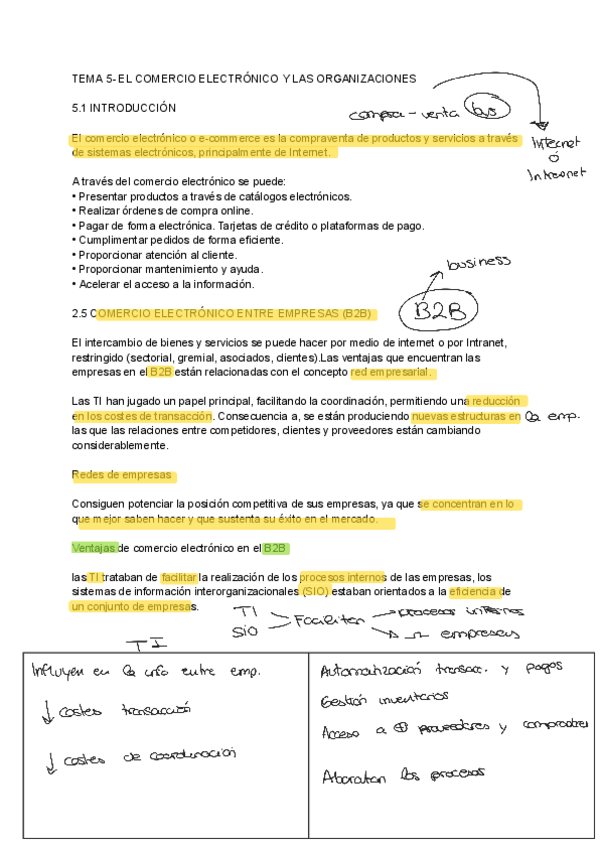 TEMA 5- EL COMERCIO ELECTRÓNICO Y LAS ORGANIZACIONES
5.1 INTRODUCCIÓN
compra - venta bys
El comercio electrónico o e-commerce es la compraventa de productos y servicios a través
de sistemas electrónicos, principalmente de Internet.
Internet
ó
Intranet
A través del comercio electrónico se puede:
• Presentar productos a través de catálogos electrónicos.
• Realizar órdenes de compra online.
• Pagar de forma electrónica. Tarjetas de crédito o plataformas de pago.
• Cumplimentar pedidos de forma eficiente.
• Proporcionar atención al cliente.
• Proporcionar mantenimiento y ayuda.
• Acelerar el acceso a la información.
business
B2B
2.5 COMERCIO ELECTRÓNICO ENTRE EMPRESAS (B2B)
El intercambio de bienes y servicios se puede hacer por medio de internet o por Intranet,
restringido (sectorial, gremial, asociados, clientes).Las ventajas que encuentran las
empresas en el B2B están relacionadas con el concepto red empresarial.
Las TI han jugado un papel principal, facilitando la coordinación, permitiendo una reducción
en los costes de transacción. Consecuencia a, se están produciendo nuevas estructuras en la emp.
las que las relaciones entre competidores, clientes y proveedores están cambiando
considerablemente.
Redes de empresas
Consiguen potenciar la posición competitiva de sus empresas, ya que se concentran en lo
que mejor saben hacer y que sustenta su éxito en el mercado.
Ventajas de comercio electrónico en el B2B
las TI trataban de facilitar la realización de los procesos internos de las empresas, los
sistemas de información interorganizacionales (SIO) estaban orientados a la eficiencia de
un conjunto de empresas.
TI
SIO
Facilitan
procesos internos
empresas
TI
Influyen en la info entre emp.
↓ costes transacción
↓ costes de coordinación
Automatización transac. y pagos
Gestión inventarios
Acceso a ⊕ proveedores y compradores
Abaratan los procesos